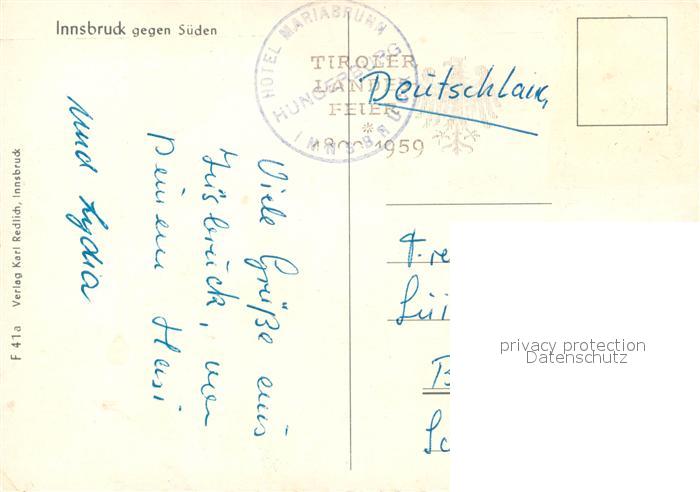 Innsbruck gegen Süden
HOTEL MARIABRUNN
HUNGERBURG
INNSBRUCK
TIROLER
LANDES
FEIER
1809 1959
Deutschland
Viele Grüße aus
Insbruck, von
Deinem Hasi
und Lydia
F 41a Verlag Karl Redlich, Innsbruck
privacy protection
Datenschutz